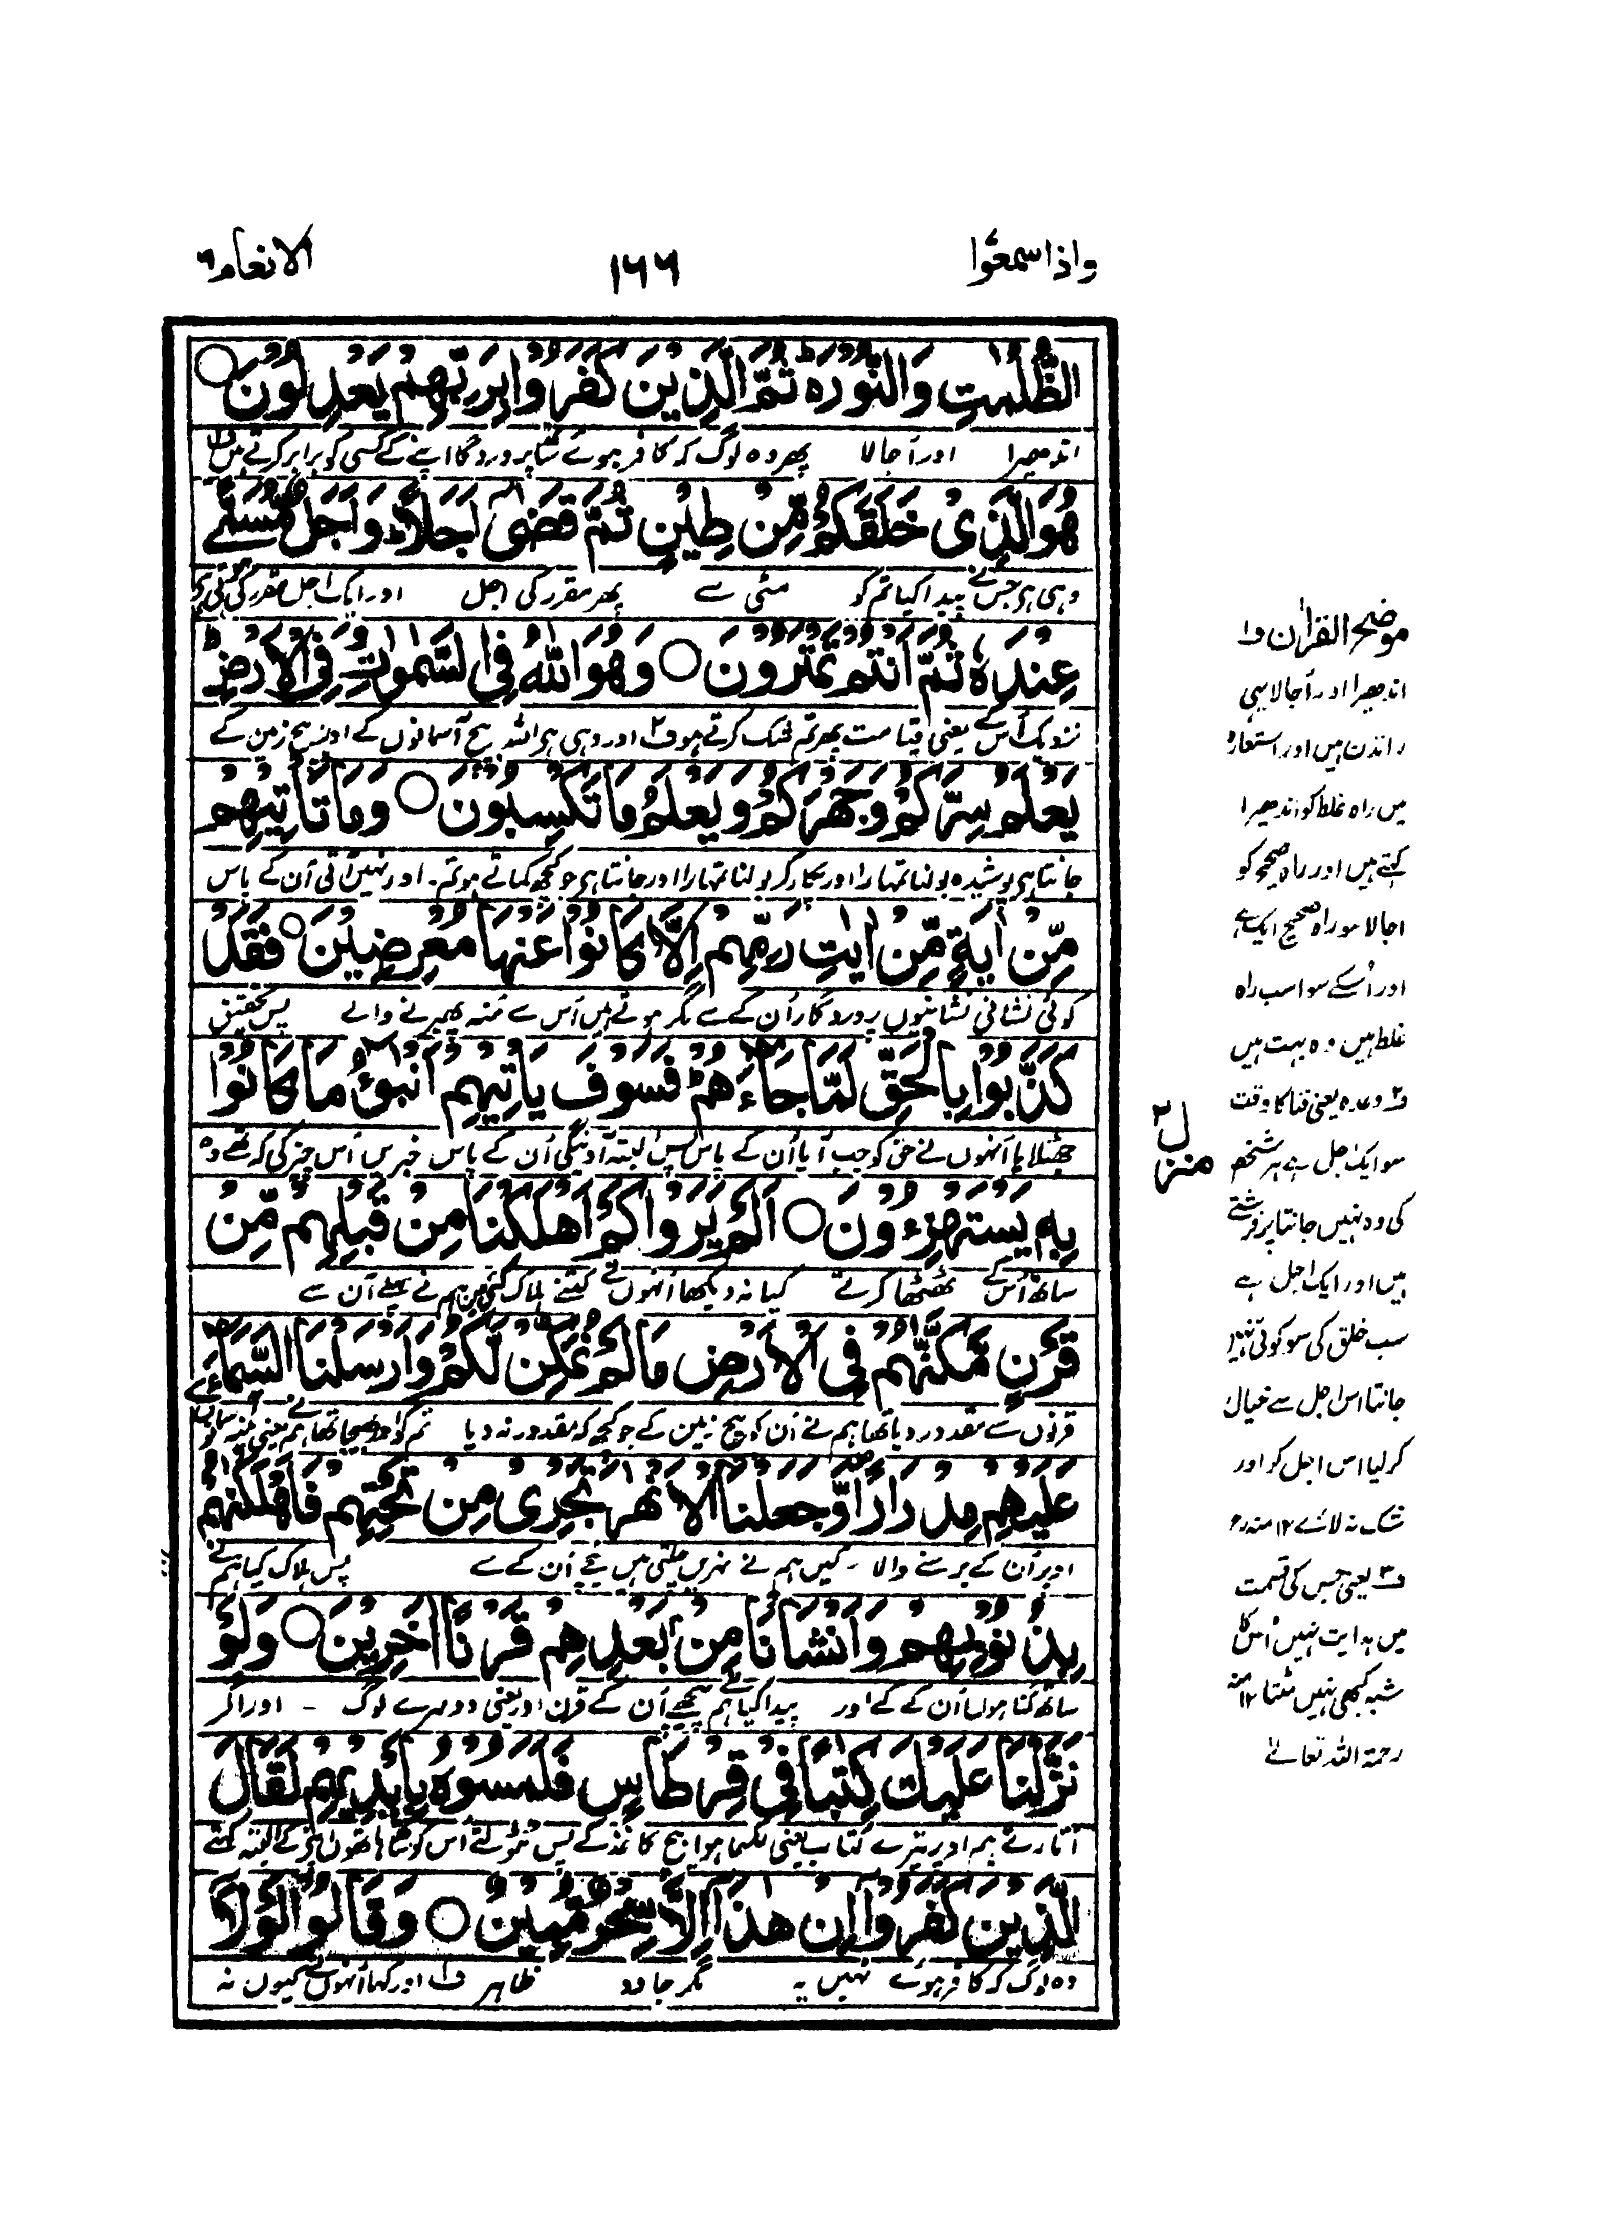 واذاسمعوا
١٦٦
الانعام ٦
الظُّلُمٰتِ وَالنُّوْرَ ؕ ثُمَّ الَّذِيْنَ كَفَرُوْا بِرَبِّهِمْ يَعْدِلُوْنَ ○
اندھیرا اور اُجالا پھر وہ لوگ کہ کافر ہوئے ساتھ پروردگار اپنے کے کسی کو برابر کرتے ہیں
هُوَ الَّذِىْ خَلَقَكُمْ مِّنْ طِيْنٍ ثُمَّ قَضٰىٓ اَجَلًا ؕ وَاَجَلٌ مُّسَمًّى
وہی ہے جس نے پیدا کیا تم کو مٹی سے پھر مقرر کی اجل اور ایک اجل مقرر کی گئی ہے
عِنْدَهٗ ثُمَّ اَنْتُمْ تَمْتَرُوْنَ ○ وَهُوَ اللّٰهُ فِى السَّمٰوٰتِ وَفِى الْاَرْضِ ؕ
نزدیک اُس کے یعنی قیامت پھر تم شک کرتے ہو ف۲ اور وہی ہے اللہ بیچ آسمانوں کے اور بیچ زمین کے
يَعْلَمُ سِرَّكُمْ وَجَهْرَكُمْ وَيَعْلَمُ مَا تَكْسِبُوْنَ ○ وَمَا تَاْتِيْهِمْ
جانتا ہے پوشیدہ بولنا تمہارا اور پکار کر بولنا تمہارا اور جانتا ہے جو کچھ کماتے ہو تم۔ اور نہیں آتی اُن کے پاس
مِّنْ اٰيَةٍ مِّنْ اٰيٰتِ رَبِّهِمْ اِلَّا كَانُوْا عَنْهَا مُعْرِضِيْنَ ○ فَقَدْ
کوئی نشانی نشانیوں پروردگار اُن کے سے مگر ہوتے ہیں اُس سے مُنہ پھیرنے والے پس تحقیق
كَذَّبُوْا بِالْحَقِّ لَمَّا جَآءَهُمْ ؕ فَسَوْفَ يَاْتِيْهِمْ اَنْۢبٰٓؤُا مَا كَانُوْا
جھٹلایا اُنہوں نے حق کو جب آیا اُن کے پاس پس البتہ آوینگی اُن کے پاس خبریں اُس چیز کی کہ تھے وہ
بِهٖ يَسْتَهْزِءُوْنَ ○ اَلَمْ يَرَوْا كَمْ اَهْلَكْنَا مِنْ قَبْلِهِمْ مِّنْ
ساتھ اُس کے ٹھٹھا کرتے کیا نہ دیکھا اُنہوں نے کتنے ہلاک کئے ہیں ہم نے پہلے اُن سے
قَرْنٍ مَّكَّنّٰهُمْ فِى الْاَرْضِ مَا لَمْ نُمَكِّنْ لَّكُمْ وَاَرْسَلْنَا السَّمَآءَ
قرنوں سے مقدور دیا تھا ہم نے اُن کو بیچ زمین کے جو کچھ کہ مقدور نہ دیا تم کو اور بھیجا تھا ہم نے یعنی مینہ آسمان کو
عَلَيْهِمْ مِّدْرَارًا وَّجَعَلْنَا الْاَنْهٰرَ تَجْرِىْ مِنْ تَحْتِهِمْ فَاَهْلَكْنٰهُمْ
اوپر اُن کے برسنے والا۔ کیں ہم نے نہریں چلتی ہیں نیچے اُن کے سے پس ہلاک کیا ہم نے
بِذُنُوْبِهِمْ وَاَنْشَاْنَا مِنْۢ بَعْدِهِمْ قَرْنًا اٰخَرِيْنَ ○ وَلَوْ
ساتھ گناہوں اُن کے کے اور پیدا کیا ہم نے پیچھے اُن کے قرن اور یعنی دوسرے لوگ - اور اگر
نَزَّلْنَا عَلَيْكَ كِتٰبًا فِىْ قِرْطَاسٍ فَلَمَسُوْهُ بِاَيْدِيْهِمْ لَقَالَ
اُتارتے ہم اوپر تیرے کتاب یعنی لکھا ہوا بیچ کاغذ کے پس ٹٹولتے اس کو ساتھ ہاتھوں اپنے کے البتہ کہتے
الَّذِيْنَ كَفَرُوْٓا اِنْ هٰذَآ اِلَّا سِحْرٌ مُّبِيْنٌ ○ وَقَالُوْا لَوْلَآ
وہ لوگ کہ کافر ہوئے نہیں یہ مگر جادو ظاہر ف۳ اور کہا اُنہوں نے کیوں نہ
منزل ۲
موضح القرآن ف۱
اندھیرا اور اُجالا یہی
رات دن ہیں اور استعارہ
میں راہ غلط کو اندھیرا
کہتے ہیں اور راہ صحیح کو
اجالا سو راہ صحیح ایک ہے
اور اُسکے سوا سب راہ
غلط ہیں وہ بہت ہیں
ف۲ وعدہ یعنی فنا کا وقت
سو ایک اجل ہے ہر شخص
کی وہ نہیں جانتا پر فرشتے
ہیں اور ایک اجل ہے
سب خلق کی سو کوئی نہیں
جانتا اس اجل سے خیال
کر لیا اس اجل کر اور
شک نہ لائے ۱۲ منہ رح
ف۳ یعنی جس کی قسمت
میں ہدایت نہیں اُس کا
شبہ کبھی نہیں مٹتا ۱۲ منہ
رحمۃ اللہ تعالےٰ